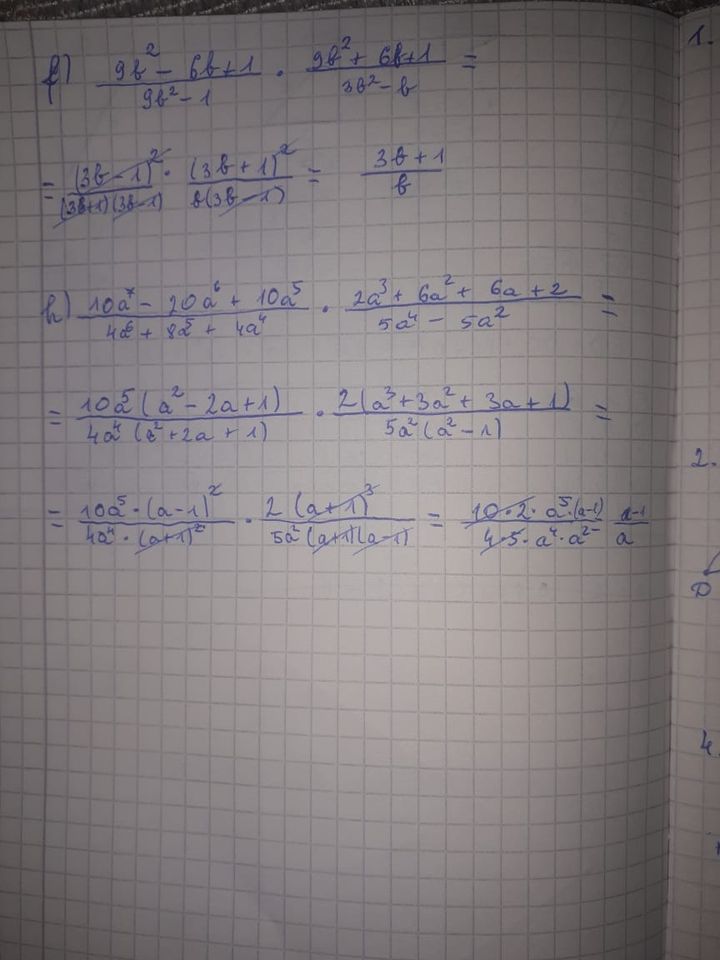 f) (9b² - 6b + 1)/(9b² - 1) · (9b² + 6b + 1)/(3b² - b) =
= (3b - 1)²/((3b+1)(3b-1)) · (3b + 1)²/(b(3b - 1)) = (3b + 1)/b
h) (10a⁷ - 20a⁶ + 10a⁵)/(4a⁶ + 8a⁵ + 4a⁴) · (2a³ + 6a² + 6a + 2)/(5a⁴ - 5a²) =
= (10a⁵(a² - 2a + 1))/(4a⁴(a² + 2a + 1)) · (2(a³ + 3a² + 3a + 1))/(5a²(a² - 1)) =
= (10a⁵ · (a - 1)²)/(4a⁴ · (a+1)²) · (2(a+1)³)/(5a²(a+1)(a-1)) = (10 · 2 · a⁵ · (a-1))/(4 · 5 · a⁴ · a²) = (a-1)/a
1.
2.
D
4.